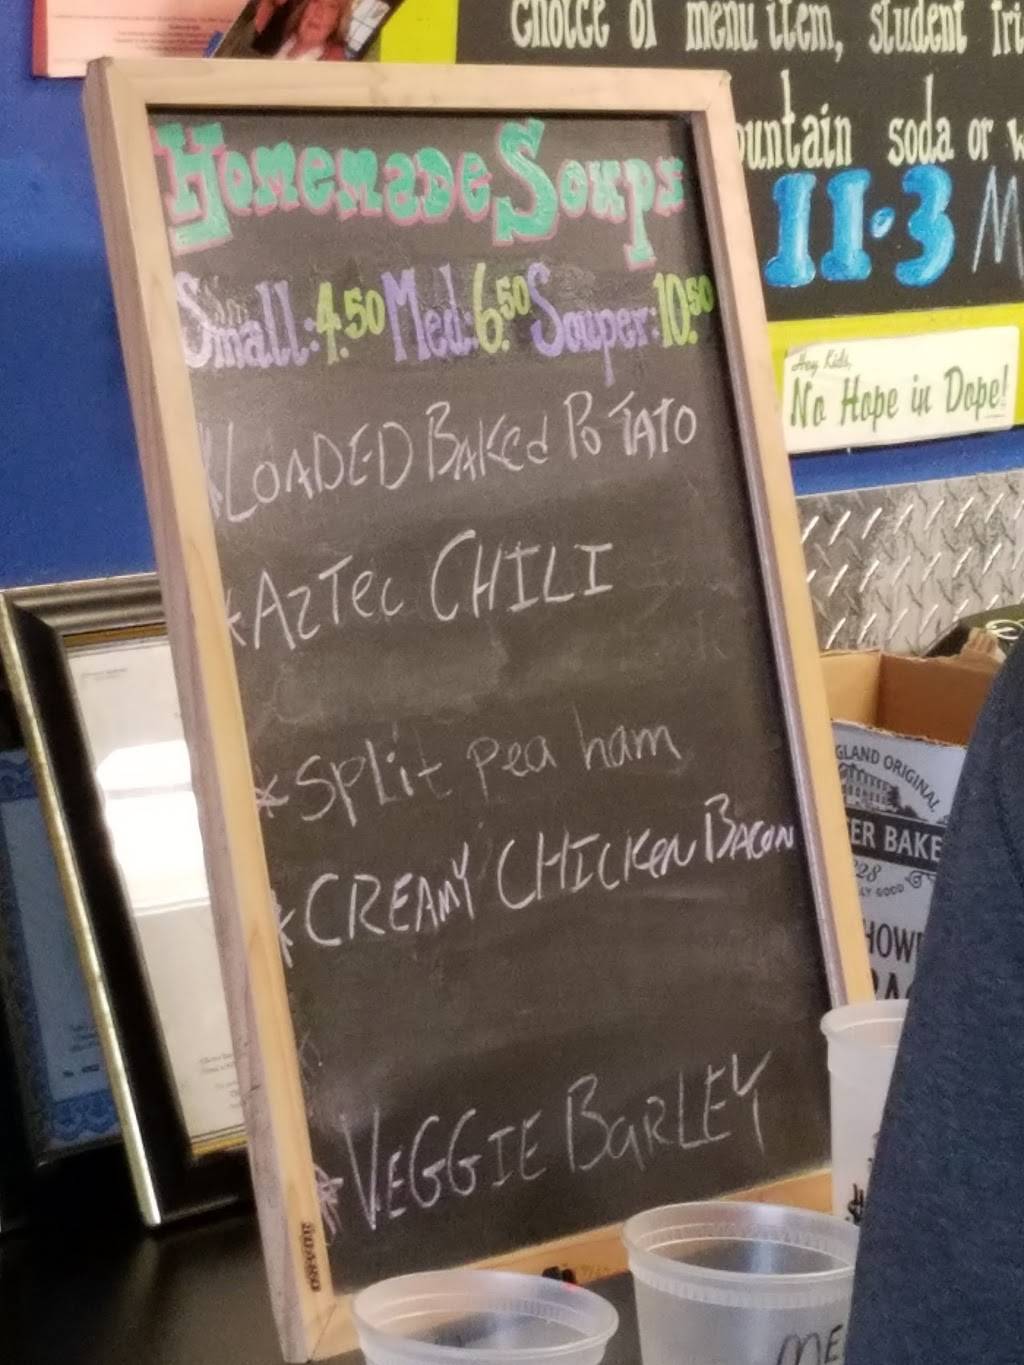 choice of menu item, student
fountain soda or
11-3 M
Homemade Soups
Small: 4.50 Med: 6.50 Souper: 10.50
Hey Kids,
No Hope in Dope!
*LOADED BAKed POTATO
*AzTec CHILI
*split pea ham
*CREAMY CHICKeN BACON
*VEGGIE BARLEY
GLAND ORIGINAL
ER BAKE
28
LY GOOD
HOW
ME